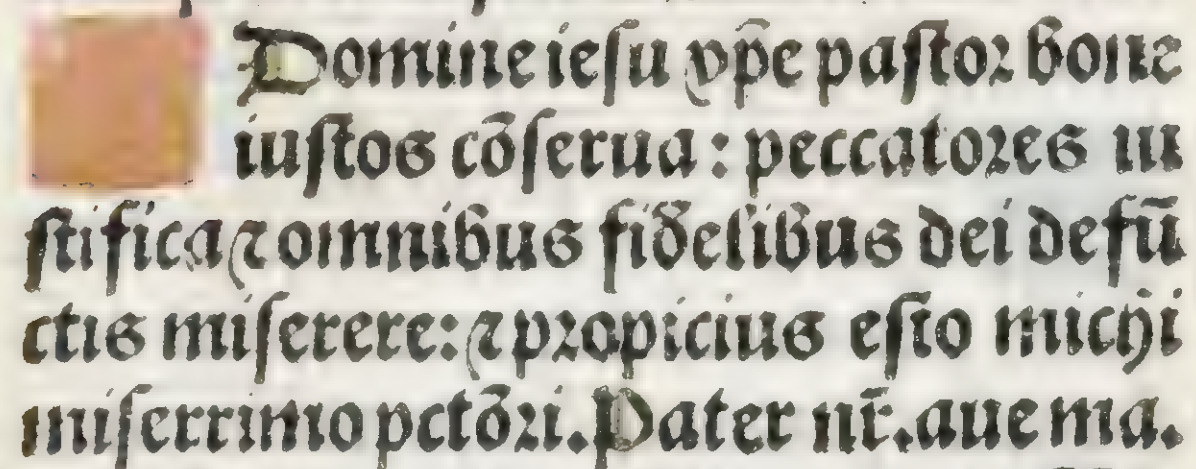 Domine iesu xp̄e pastor bone
iustos cōserua: peccatores iu
stifica ⁊ omnibus fidelibus dei defū
ctis miserere: ⁊ propicius esto michi
miserrimo pctōri. Pater nr̄. aue ma.